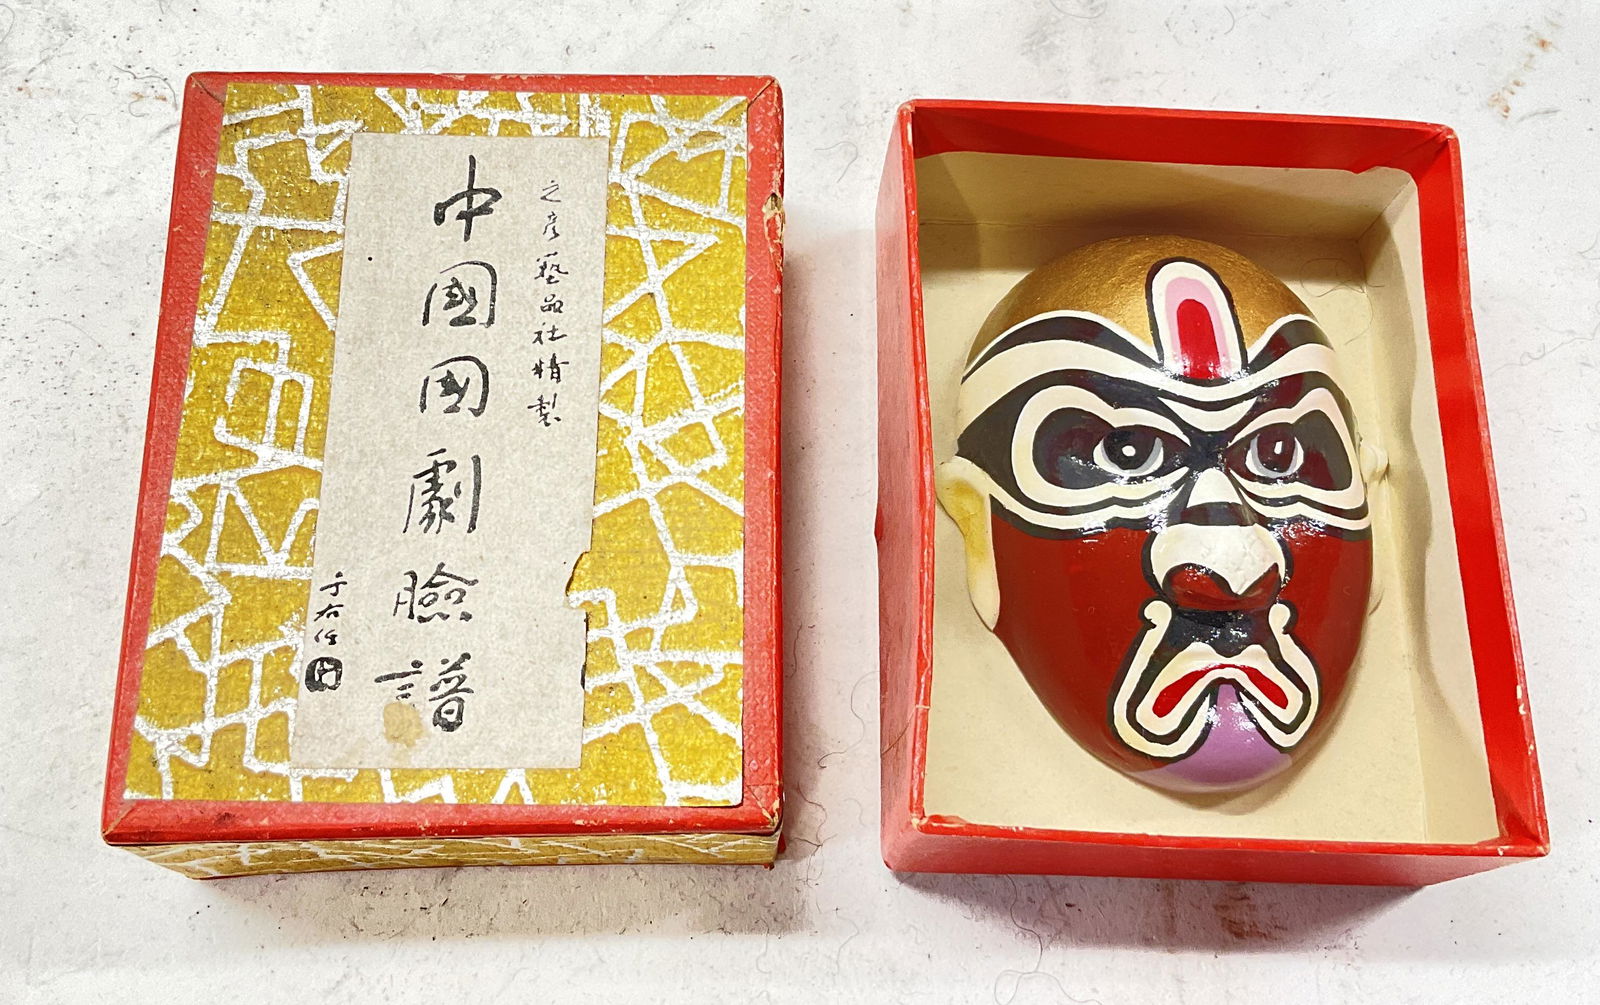 之彦藝品社精製
中國國劇臉譜
于右任